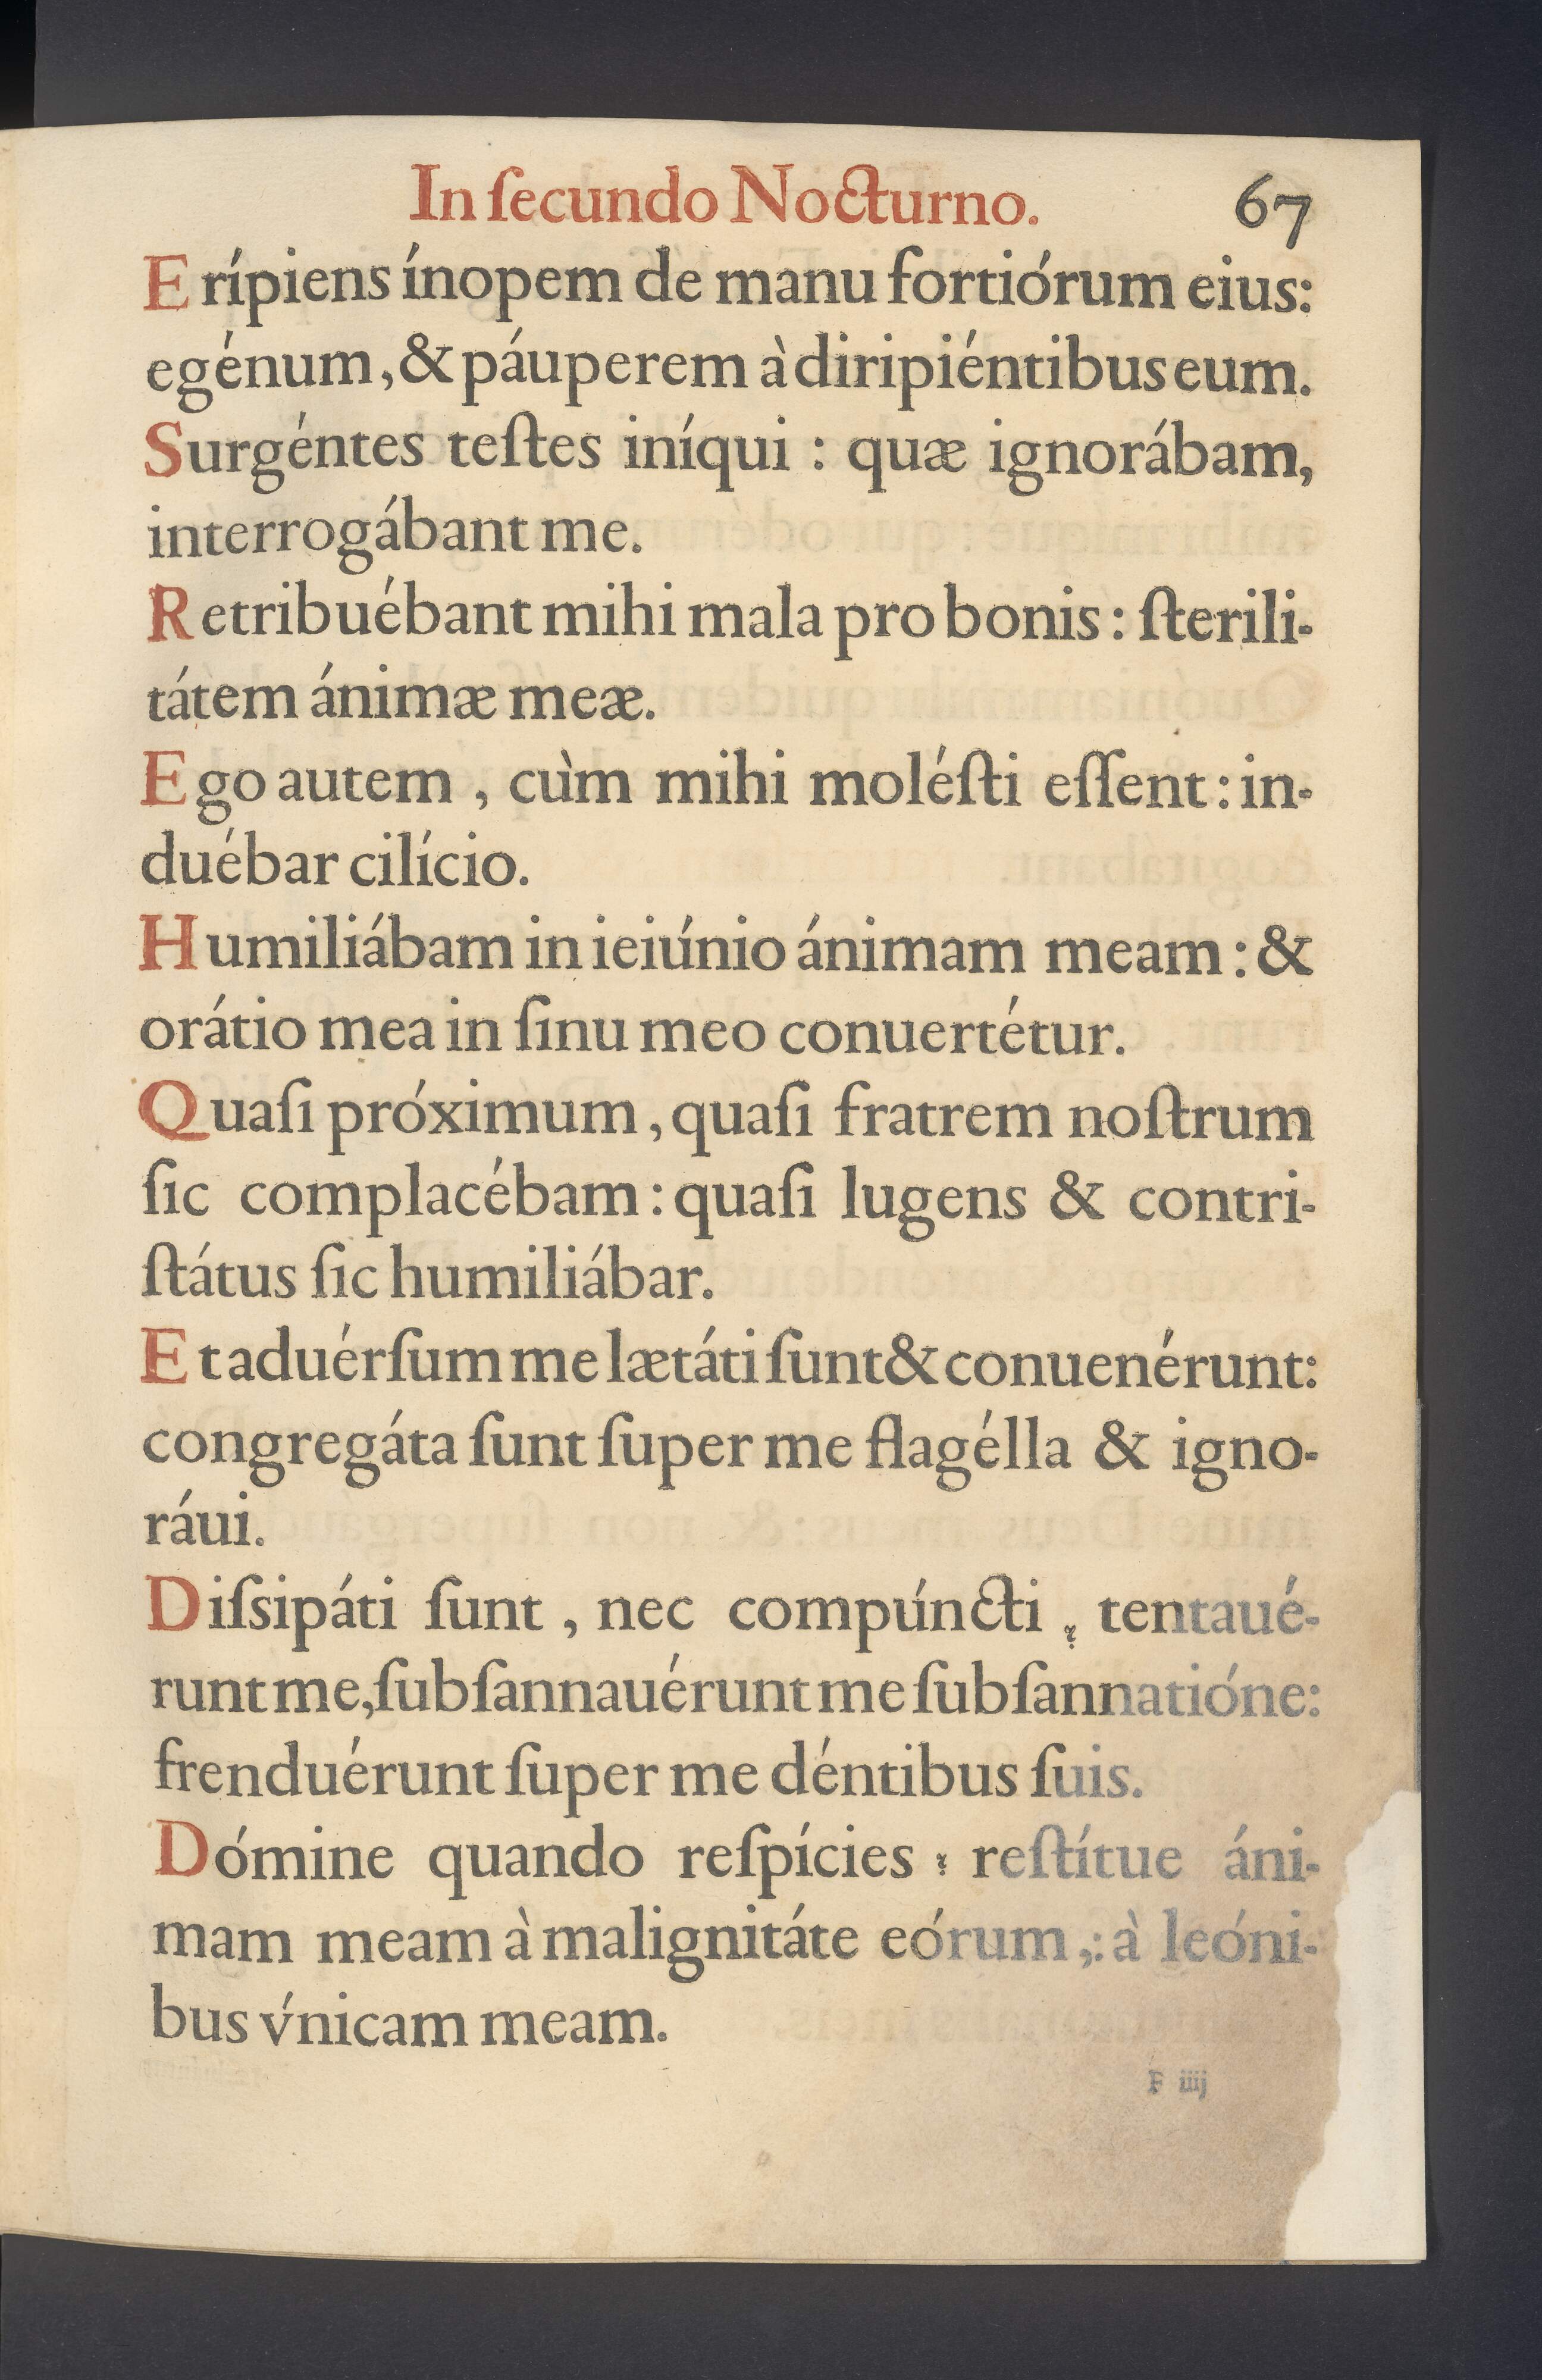 In ſecundo Nocturno. 67
Erípiens ínopem de manu fortiórum eius:
egénum, & páuperem à diripiéntibus eum.
Surgéntes teſtes iníqui : quæ ignorábam,
interrogábant me.
Retribuébant mihi mala pro bonis : ſterili-
tátem ánimæ meæ.
Ego autem , cùm mihi moléſti eſſent : in-
duébar cilício.
Humiliábam in ieiúnio ánimam meam : &
orátio mea in ſinu meo conuertétur.
Quaſi próximum, quaſi fratrem noſtrum
ſic complacébam : quaſi lugens & contri-
ſtátus ſic humiliábar.
Et aduérſum me lætáti ſunt & conuenérunt:
congregáta ſunt ſuper me flagélla & igno-
ráui.
Diſsipáti ſunt , nec compúncti , tentaué-
runt me, ſubſannauérunt me ſubſannatióne:
frenduérunt ſuper me déntibus ſuis.
Dómine quando reſpícies : reſtítue áni-
mam meam à malignitáte eórum,: à leóni-
bus v́nicam meam.
F iiij